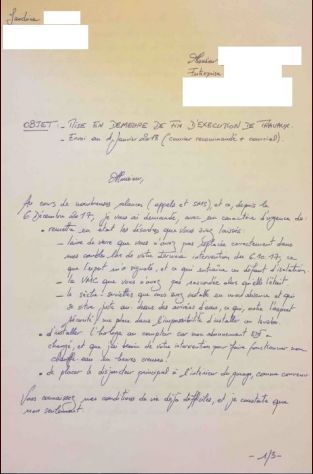 Sandrine
Monsieur
Entreprise
OBJET : - MISE EN DEMEURE DE FIN D'EXECUTION DE TRAVAUX.
- Envoi au 4 Janvier 2018 (courrier recommandé + courriel).
Monsieur,
Au cours de nombreuses relances (appels et SMS), et ce, depuis le
6 Décembre 2017, je vous ai demandé, avec un caractère d'urgence de :
- remettre en état les désordres que vous avez laissés :
- laine de verre que vous n'avez pas replacée correctement dans
mes combles lors de votre dernière intervention du 6.10.17, ce
que l'expert m'a signalé, et ce qui entraine un défaut d'isolation.
- la VMC que vous n'avez pas raccordée alors qu'elle l'était
- le sèche-serviettes que vous avez installé en mon absence et qui
se situe juste au dessus des arrivées d'eau, ce qui, outre l'aspect
sécurité, me place dans l'impossibilité d'installer un lavabo.
- d'installer l'horloge au compteur car mon abonnement EDF a
changé, et que j'ai besoin de votre intervention pour faire fonctionner mon
chauffe eau en heures creuses !
- de placer le disjoncteur principal à l'intérieur du garage, comme convenu
Vous connaissez mes conditions de vie déjà difficiles, et je constate que
non seulement
- 1/3 -